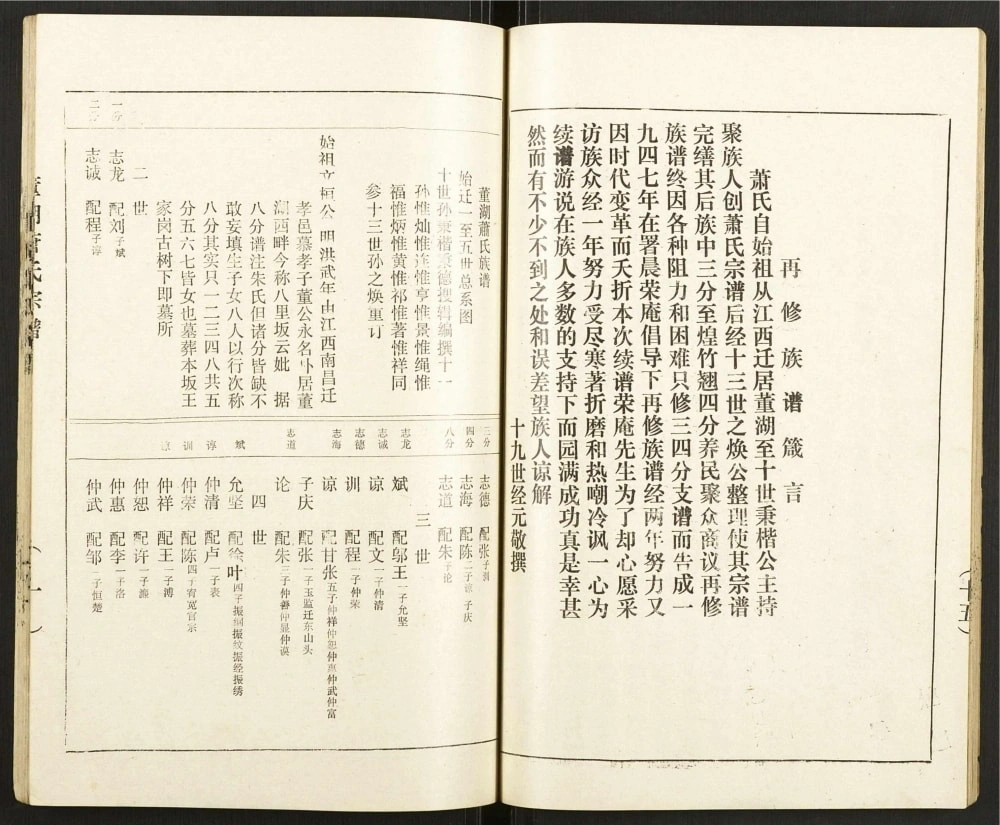 再修族谱箴言
萧氏自始祖从江西迁居董湖至十世秉楷公主持
聚族人创萧氏宗谱后经十三世之焕公整理使其宗谱
完缮其后族中三分至煌竹翘四分养民聚众商议再修
族谱终因各种阻力和困难只修三四分支谱而告成一
九四七年在署晨荣庵倡导下再修族谱经两年努力又
因时代变革而夭折本次续谱荣庵先生为了却心愿采
访族众经一年努力受尽寒著折磨和热嘲冷讽一心为
续谱游说在族人多数的支持下而园满成功真是幸甚
然而有不少不到之处和误差望族人谅解
十九世经元敬撰
(十五)
董湖萧氏族谱
始迁一至五世总系图
十世孙秉楷秉德搜辑编撰十一
孙惟灿惟连惟亨惟景惟绳惟
福惟炳惟黄惟祁惟著惟祥同
参十三世孙之焕重订
始祖文恒公 明洪武年由江西南昌迁
孝邑慕孝子董公永名卜居董
湖西畔今称八里坂云妣 据
八分谱注朱氏但诸分皆缺不
敢妄填生子女八人以行次称
八分其实只一二三四八共五
分五六七皆女也墓葬本坂王
家岗古树下即墓所
二世
一分 志龙 配刘 子斌
二分 志诚 配程 子谆
三分 志德 配张 子训
四分 志海 配陈 二子谅 子庆
八分 志道 配朱 子论
三世
志龙 斌 配邬王 一子允坚
志诚 谅 配文 一子仲清
志德 训 配程 一子仲荣
志海 谅 配甘张 五子仲祥仲恕仲惠仲武仲富
子庆 配张 一子玉监迁东山头
志道 论 配朱 三子仲善仲显仲谟
四世
斌 允坚 配徐叶 四子振纲振纹振经振绣
谆 仲清 配卢 一子表
训 仲荣 配陈 四子宥宽官宗
谅 仲祥 配王 一子溥
仲恕 配许 一子濂
仲惠 配李 一子洛
仲武 配邹 一子恒楚
董湖萧氏宗谱
(一)